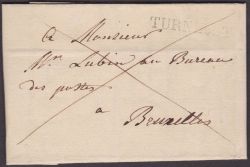 TURN
à Monsieur
Mr. Lubin au Bureau
des postes
à
Bruxelles